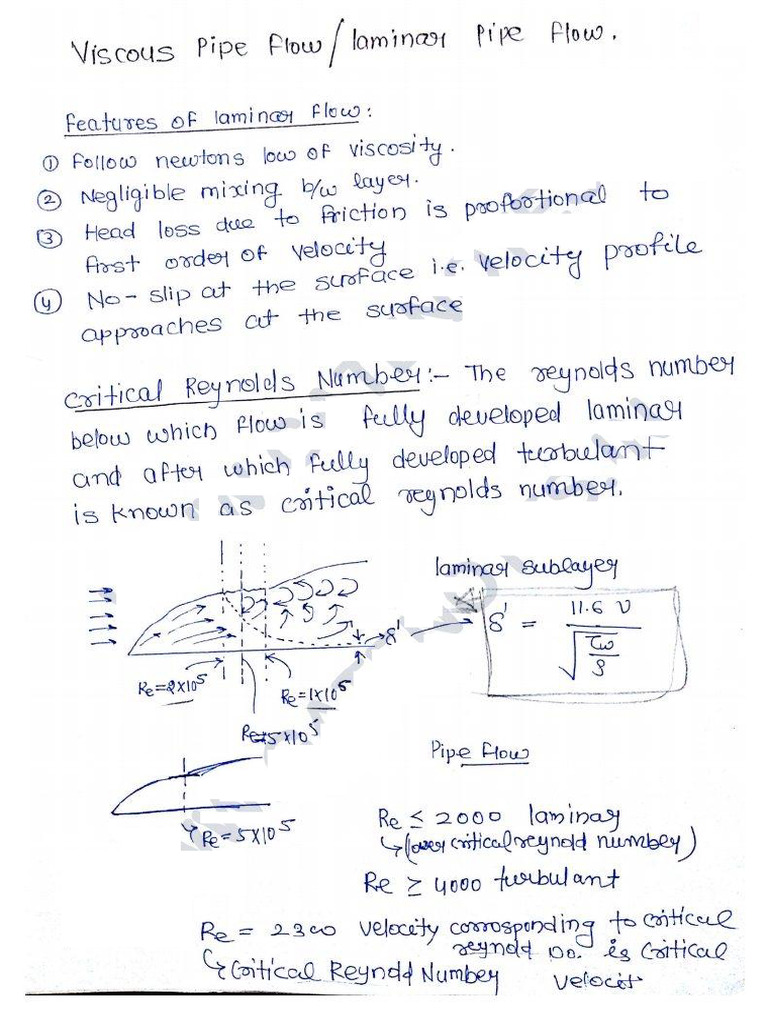 Viscous Pipe Flow / laminar Pipe Flow.
Features of laminar Flow:
① Follow newtons low of viscosity.
② Negligible mixing b/w layer.
③ Head loss due to friction is proportional to
first order of velocity
④ No-slip at the surface i.e. velocity profile
approaches at the surface
Critical Reynolds Number:- The reynolds number
below which flow is fully developed laminar
and after which fully developed turbulant
is known as critical reynolds number.
laminar sublayer
δ' = 11.6 ν / √(τω/ρ)
δ'
Re=2×10⁵
Re=1×10⁵
Re=5×10⁵
Pipe flow
Re=5×10⁵
Re ≤ 2000 laminar
↳ (lower critical reynold number)
Re ≥ 4000 turbulant
Re = 2300 velocity corrosponding to critical
reynold no. is critical
↳ Critical Reynold Number velocit